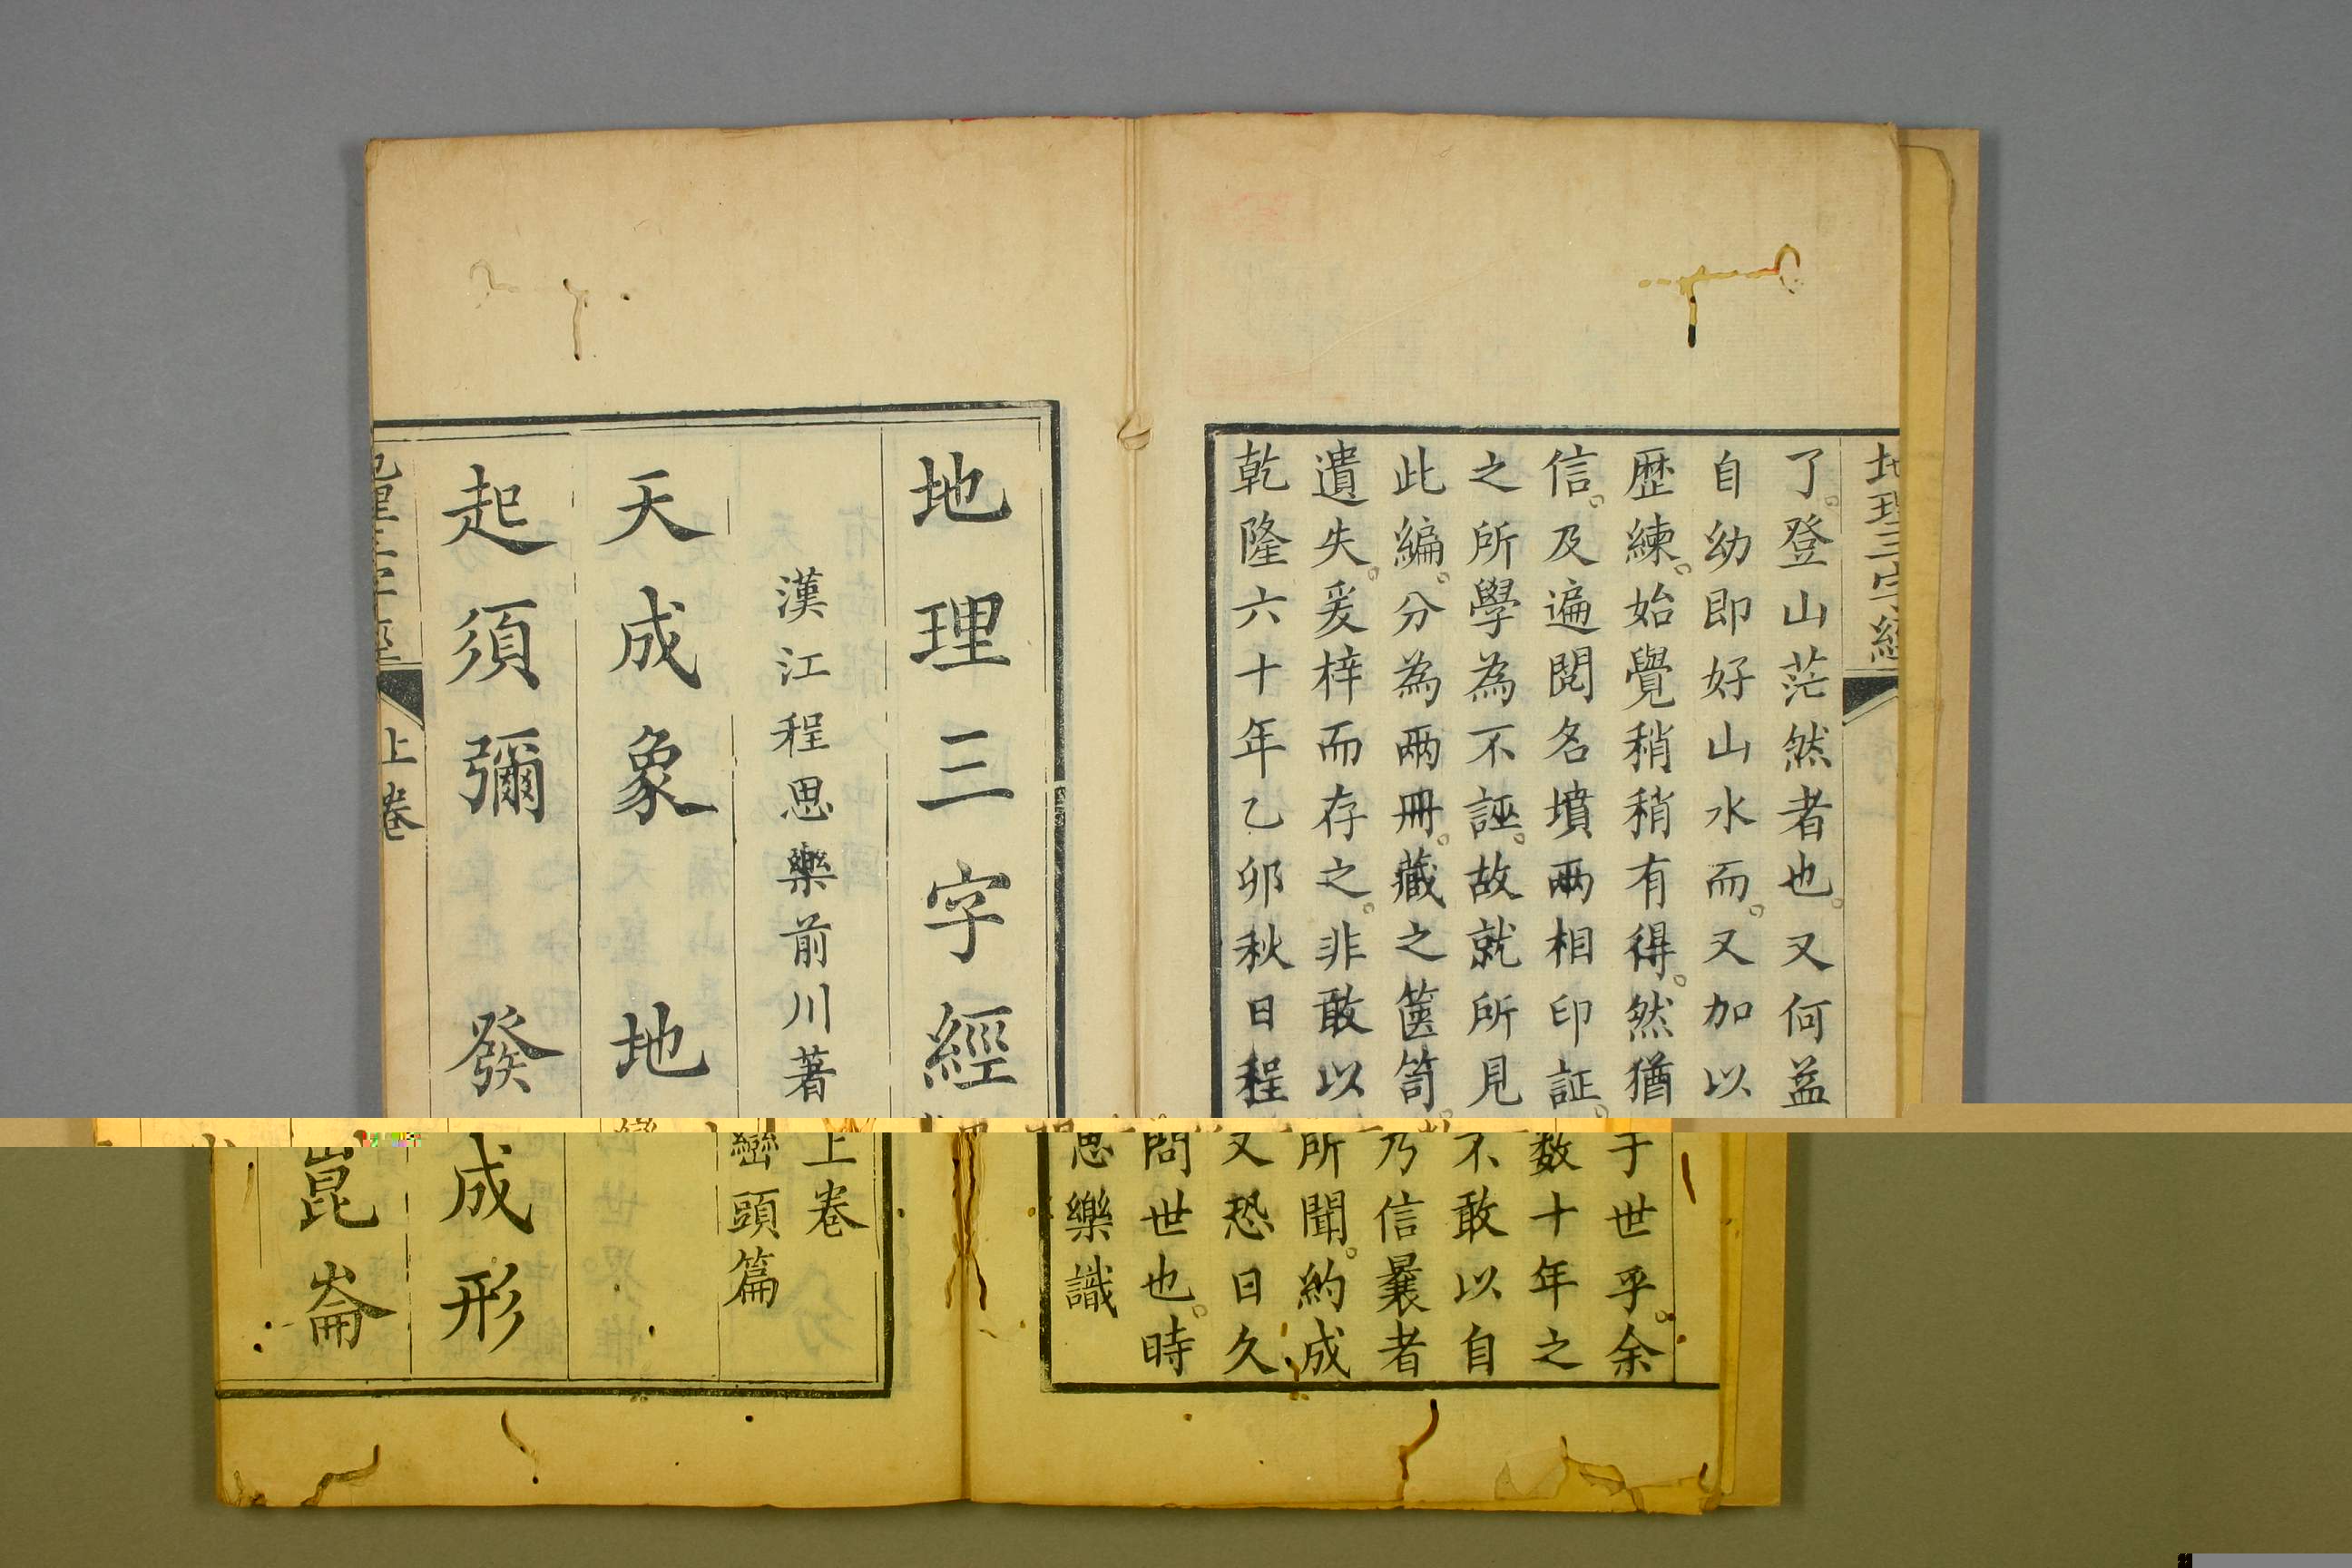 地理三字經
了。登山茫然者也。又何益于世乎。余
自幼即好山水而。又加以数十年之
歴練。始覺稍稍有得。然猶不敢以自
信。及遍閱名墳兩相印証。乃信曩者
之所學為不誣。故就所見所聞。約成
此編。分為兩冊。藏之篋笥。又恐日久
遺失。爰梓而存之。非敢以問世也。時
乾隆六十年乙卯秋日程思樂識
地理三字經
上卷
巒頭篇
漢江程思樂前川著
天成象 地成形
起須彌 發崑崙
地理三字經 上卷